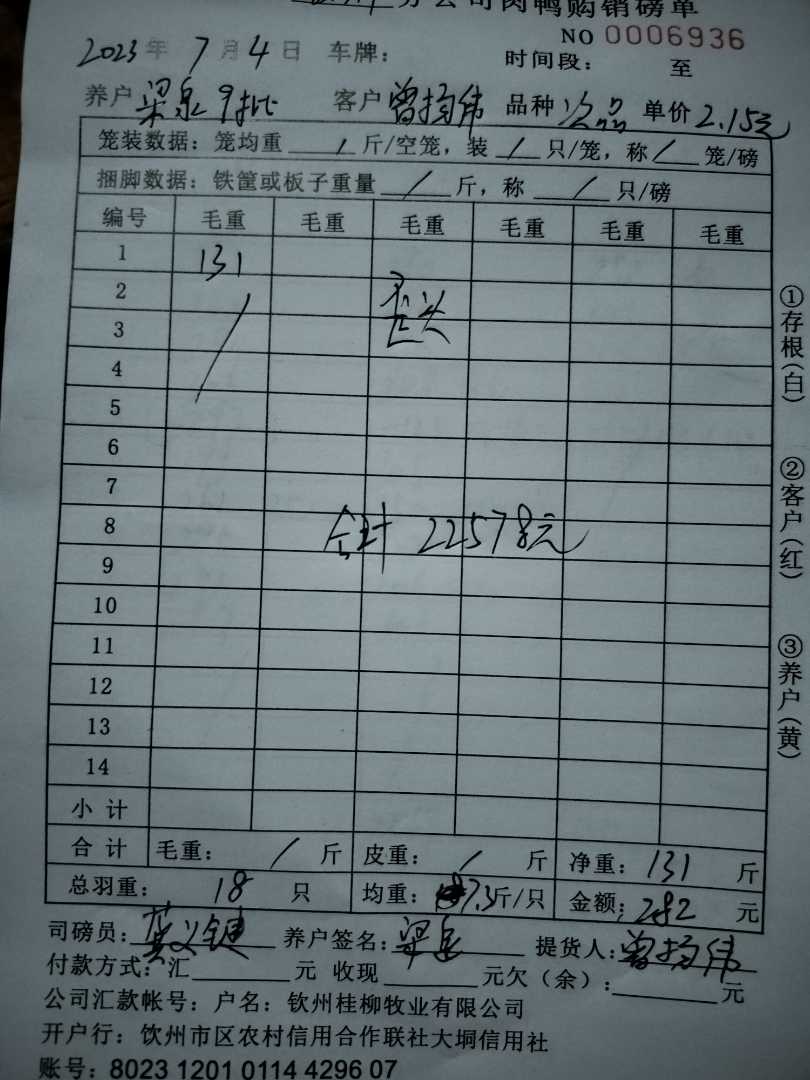 分公司肉鸭购销磅单
NO 0006936
2023年 7月4日 车牌：
时间段： 至
养户 梁泉9批 客户 曾扬伟 品种 次品 单价 2.15元
笼装数据：笼均重 / 斤/空笼，装 / 只/笼，称 / 笼/磅
捆脚数据：铁筐或板子重量 / 斤，称 / 只/磅
编号 毛重 毛重 毛重 毛重 毛重 毛重
1 131
2 歪头
3
4
5
6
7
8 合计 22578元
9
10
11
12
13
14
小计
合计 毛重： / 斤 皮重： / 斤 净重：131 斤
总羽重： 18 只 均重： 7.3斤/只 金额：282 元
司磅员： 养户签名：梁泉 提货人：曾扬伟
付款方式：汇 元 收现 元欠（余）： 元
公司汇款帐号：户名：钦州桂柳牧业有限公司
开户行：钦州市区农村信用合作联社大垌信用社
账号：8023 1201 0114 4296 07
①存根（白）
②客户（红）
③养户（黄）